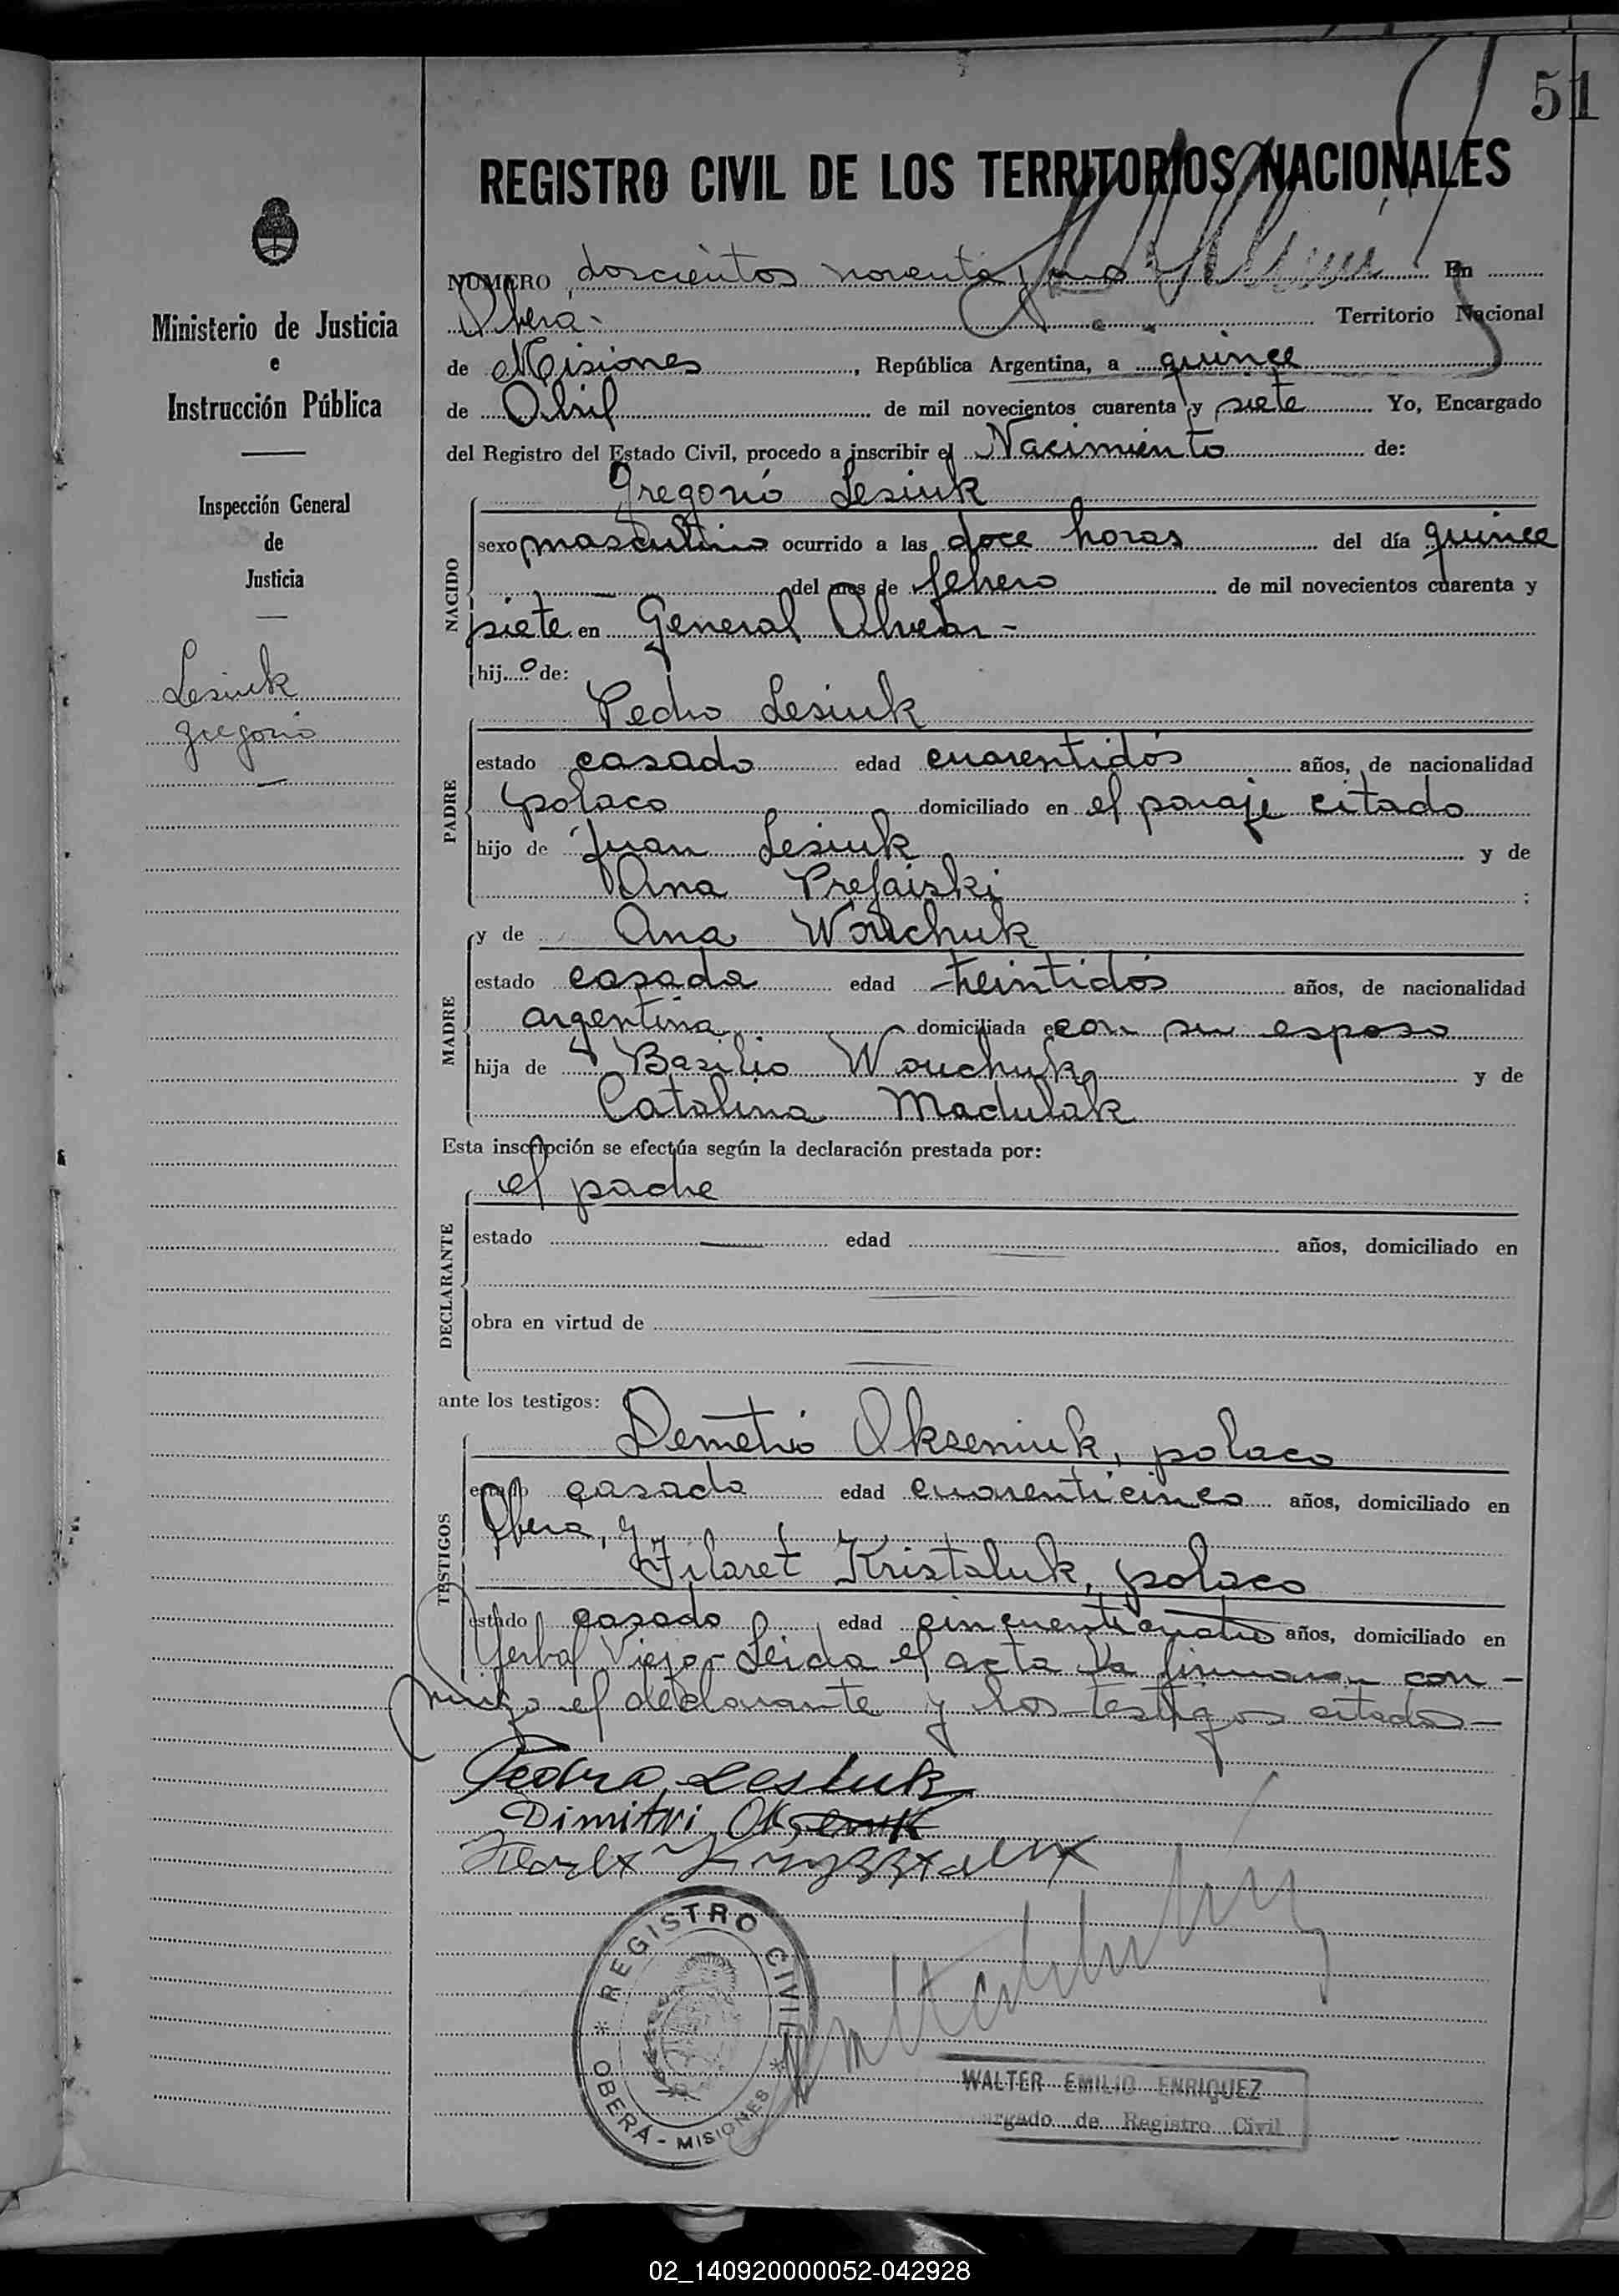 51
REGISTRO CIVIL DE LOS TERRITORIOS NACIONALES
NUMERO doscientos noventa y uno En
Obera.- Territorio Nacional
de Misiones, República Argentina, a quince
de Abril de mil novecientos cuarenta y siete Yo, Encargado
del Registro del Estado Civil, procedo a inscribir el Nacimiento de:
Ministerio de Justicia
e
Instrucción Pública
Inspección General
de
Justicia
Lesiuk
Gregorio
NACIDO
Gregorio Lesiuk
sexo masculino ocurrido a las doce horas del día quince
del mes de febrero de mil novecientos cuarenta y
siete en General Alvear-
hij o de:
PADRE
Pedro Lesiuk
estado casado edad cuarentidós años, de nacionalidad
polaco domiciliado en el paraje citado
hijo de Juan Lesiuk y de
Ana Prefaiski;
MADRE
y de Ana Wouchuk
estado casada edad treintidós años, de nacionalidad
argentina domiciliada con su esposo
hija de Basilio Wouchuk y de
Catalina Madulak
Esta inscripción se efectúa según la declaración prestada por:
DECLARANTE
el padre
estado edad años, domiciliado en
obra en virtud de
ante los testigos:
TESTIGOS
Demetrio Okseniuk, polaco
estado casado edad cuarenticinco años, domiciliado en
Obera, y
Filaret Kristaluk, polaco
estado casado edad cincuenticuatro años, domiciliado en
Yerbal Viejo- Leida el acta la firmaron con-
migo el declarante y los testigos citados-
Pedro Lesiuk
Dimitri
REGISTRO CIVIL
OBERÁ - MISIONES
WALTER EMILIO ENRIQUEZ
argado de Registro Civil
02_140920000052-042928